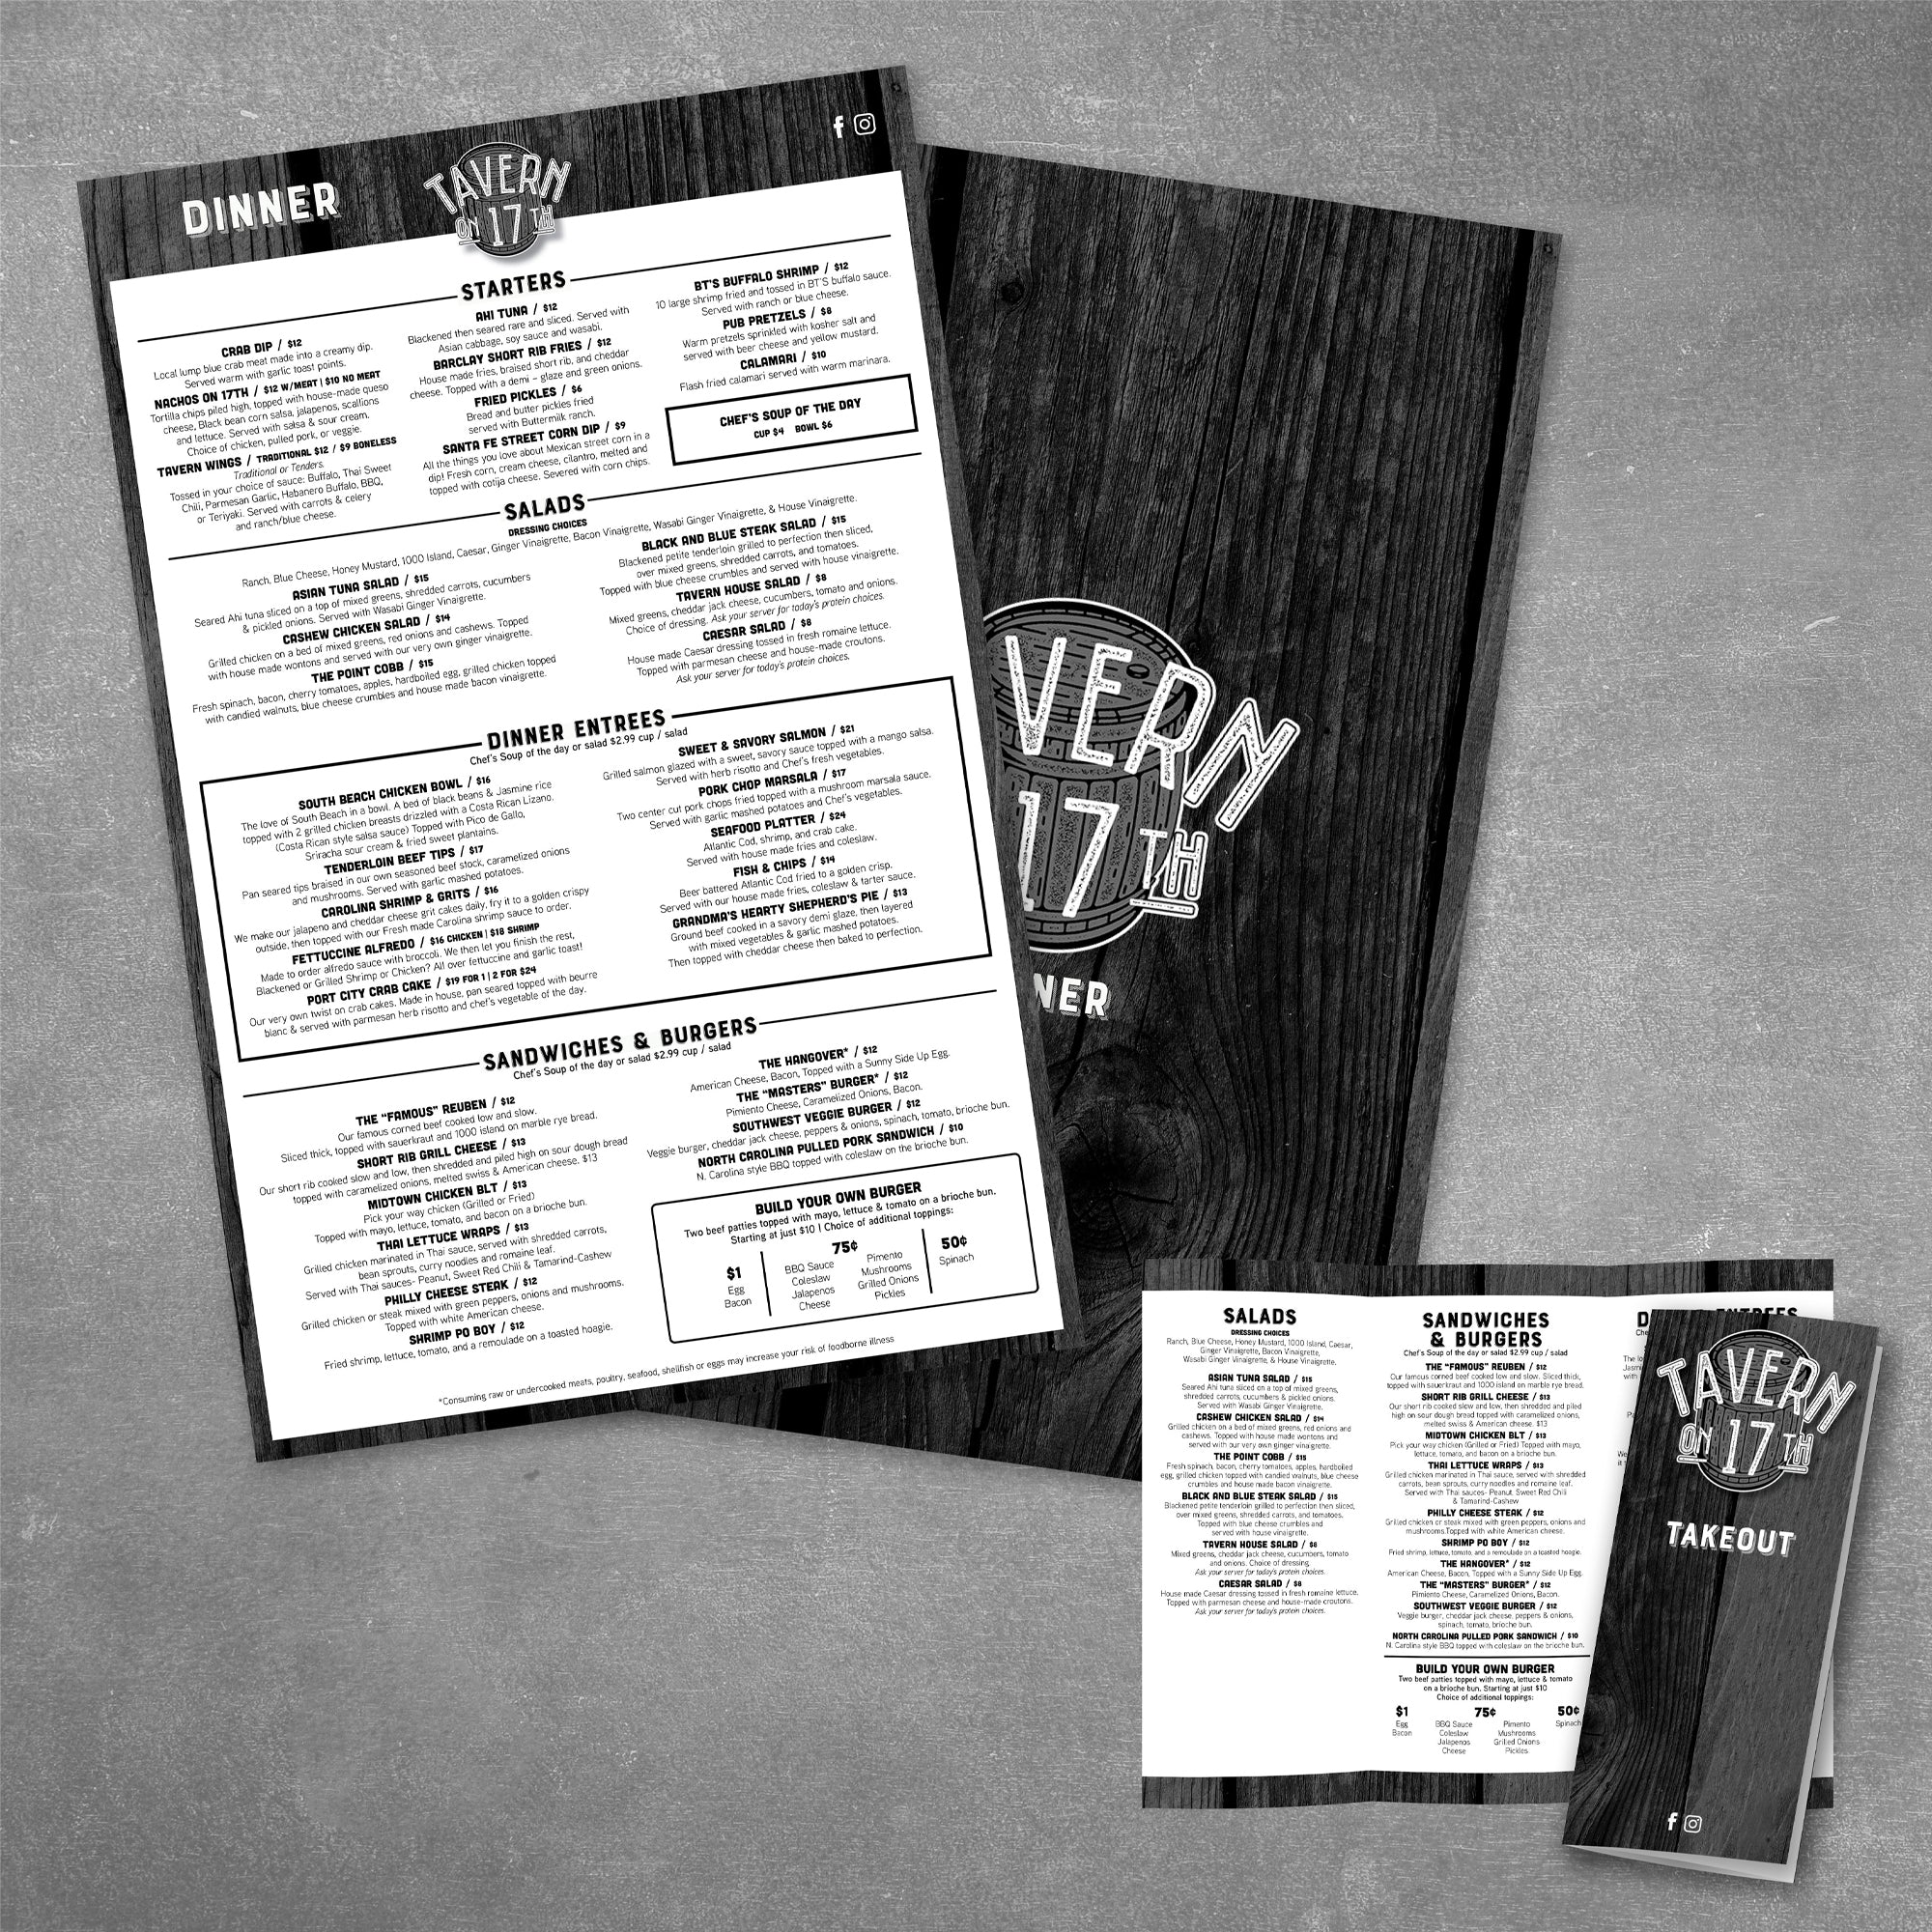 DINNER
TAVERN
ON 17TH
STARTERS
CRAB DIP / $12
Local lump blue crab meat made into a creamy dip.
Served warm with garlic toast points.
NACHOS ON 17TH / $12 W/MEAT | $10 NO MEAT
Tortilla chips piled high, topped with house-made queso
cheese, Black bean corn salsa, jalapenos, scallions
and lettuce. Served with salsa & sour cream.
Choice of chicken, pulled pork, or veggie.
TAVERN WINGS / TRADITIONAL $12 / $9 BONELESS
Traditional or Tenders.
Tossed in your choice of sauce: Buffalo, Thai Sweet
Chili, Parmesan Garlic, Habanero Buffalo, BBQ,
or Teriyaki. Served with carrots & celery
and ranch/blue cheese.
AHI TUNA / $12
Blackened then seared rare and sliced. Served with
Asian cabbage, soy sauce and wasabi.
BARCLAY SHORT RIB FRIES / $12
House made fries, braised short rib, and cheddar
cheese. Topped with a demi – glaze and green onions.
FRIED PICKLES / $6
Bread and butter pickles fried
served with Buttermilk ranch.
SANTA FE STREET CORN DIP / $9
All the things you love about Mexican street corn in a
dip! Fresh corn, cream cheese, cilantro, melted and
topped with cotija cheese. Severed with corn chips.
BT'S BUFFALO SHRIMP / $12
10 large shrimp fried and tossed in BT'S buffalo sauce.
Served with ranch or blue cheese.
PUB PRETZELS / $8
Warm pretzels sprinkled with kosher salt and
served with beer cheese and yellow mustard.
CALAMARI / $10
Flash fried calamari served with warm marinara.
CHEF'S SOUP OF THE DAY
CUP $4 BOWL $6
SALADS
DRESSING CHOICES
Ranch, Blue Cheese, Honey Mustard, 1000 Island, Caesar, Ginger Vinaigrette, Bacon Vinaigrette, Wasabi Ginger Vinaigrette, & House Vinaigrette.
ASIAN TUNA SALAD / $15
Seared Ahi tuna sliced on a top of mixed greens, shredded carrots, cucumbers
& pickled onions. Served with Wasabi Ginger Vinaigrette.
CASHEW CHICKEN SALAD / $14
Grilled chicken on a bed of mixed greens, red onions and cashews. Topped
with house made wontons and served with our very own ginger vinaigrette.
THE POINT COBB / $15
Fresh spinach, bacon, cherry tomatoes, apples, hardboiled egg, grilled chicken topped
with candied walnuts, blue cheese crumbles and house made bacon vinaigrette.
BLACK AND BLUE STEAK SALAD / $15
Blackened petite tenderloin grilled to perfection then sliced,
over mixed greens, shredded carrots, and tomatoes.
Topped with blue cheese crumbles and served with house vinaigrette.
TAVERN HOUSE SALAD / $8
Mixed greens, cheddar jack cheese, cucumbers, tomato and onions.
Choice of dressing. Ask your server for today's protein choices.
CAESAR SALAD / $8
House made Caesar dressing tossed in fresh romaine lettuce.
Topped with parmesan cheese and house-made croutons.
Ask your server for today's protein choices.
DINNER ENTREES
Chef's Soup of the day or salad $2.99 cup / salad
SOUTH BEACH CHICKEN BOWL / $16
The love of South Beach in a bowl. A bed of black beans & Jasmine rice
topped with 2 grilled chicken breasts drizzled with a Costa Rican Lizano.
(Costa Rican style salsa sauce) Topped with Pico de Gallo,
Sriracha sour cream & fried sweet plantains.
TENDERLOIN BEEF TIPS / $17
Pan seared tips braised in our own seasoned beef stock, caramelized onions
and mushrooms. Served with garlic mashed potatoes.
CAROLINA SHRIMP & GRITS / $16
We make our jalapeno and cheddar cheese grit cakes daily, fry it to a golden crispy
outside, then topped with our Fresh made Carolina shrimp sauce to order.
FETTUCCINE ALFREDO / $16 CHICKEN | $18 SHRIMP
Made to order alfredo sauce with broccoli. We then let you finish the rest,
Blackened or Grilled Shrimp or Chicken? All over fettuccine and garlic toast!
PORT CITY CRAB CAKE / $19 FOR 1 | 2 FOR $24
Our very own twist on crab cakes. Made in house, pan seared topped with beurre
blanc & served with parmesan herb risotto and chef's vegetable of the day.
SWEET & SAVORY SALMON / $21
Grilled salmon glazed with a sweet, savory sauce topped with a mango salsa.
Served with herb risotto and Chef's fresh vegetables.
PORK CHOP MARSALA / $17
Two center cut pork chops fried topped with a mushroom marsala sauce.
Served with garlic mashed potatoes and Chef's vegetables.
SEAFOOD PLATTER / $24
Atlantic Cod, shrimp, and crab cake.
Served with house made fries and coleslaw.
FISH & CHIPS / $14
Beer battered Atlantic Cod fried to a golden crisp.
Served with our house made fries, coleslaw & tarter sauce.
GRANDMA'S HEARTY SHEPHERD'S PIE / $13
Ground beef cooked in a savory demi glaze, then layered
with mixed vegetables & garlic mashed potatoes.
Then topped with cheddar cheese then baked to perfection.
SANDWICHES & BURGERS
Chef's Soup of the day or salad $2.99 cup / salad
THE "FAMOUS" REUBEN / $12
Our famous corned beef cooked low and slow.
Sliced thick, topped with sauerkraut and 1000 island on marble rye bread.
SHORT RIB GRILL CHEESE / $13
Our short rib cooked slow and low, then shredded and piled high on sour dough bread
topped with caramelized onions, melted swiss & American cheese. $13
MIDTOWN CHICKEN BLT / $13
Pick your way chicken (Grilled or Fried)
Topped with mayo, lettuce, tomato, and bacon on a brioche bun.
THAI LETTUCE WRAPS / $13
Grilled chicken marinated in Thai sauce, served with shredded carrots,
bean sprouts, curry noodles and romaine leaf.
Served with Thai sauces- Peanut, Sweet Red Chili & Tamarind-Cashew
PHILLY CHEESE STEAK / $12
Grilled chicken or steak mixed with green peppers, onions and mushrooms.
Topped with white American cheese.
SHRIMP PO BOY / $12
Fried shrimp, lettuce, tomato, and a remoulade on a toasted hoagie.
THE HANGOVER* / $12
American Cheese, Bacon, Topped with a Sunny Side Up Egg.
THE "MASTERS" BURGER* / $12
Pimiento Cheese, Caramelized Onions, Bacon.
SOUTHWEST VEGGIE BURGER / $12
Veggie burger, cheddar jack cheese, peppers & onions, spinach, tomato, brioche bun.
NORTH CAROLINA PULLED PORK SANDWICH / $10
N. Carolina style BBQ topped with coleslaw on the brioche bun.
BUILD YOUR OWN BURGER
Two beef patties topped with mayo, lettuce & tomato on a brioche bun.
Starting at just $10 | Choice of additional toppings:
$1
Egg
Bacon
75¢
BBQ Sauce
Coleslaw
Jalapenos
Cheese
Pimento
Mushrooms
Grilled Onions
Pickles
50¢
Spinach
*Consuming raw or undercooked meats, poultry, seafood, shellfish or eggs may increase your risk of foodborne illness
VERN
17TH
NER
SALADS
DRESSING CHOICES
Ranch, Blue Cheese, Honey Mustard, 1000 Island, Caesar,
Ginger Vinaigrette, Bacon Vinaigrette,
Wasabi Ginger Vinaigrette, & House Vinaigrette.
ASIAN TUNA SALAD / $15
Seared Ahi tuna sliced on a top of mixed greens,
shredded carrots, cucumbers & pickled onions.
Served with Wasabi Ginger Vinaigrette.
CASHEW CHICKEN SALAD / $14
Grilled chicken on a bed of mixed greens, red onions and
cashews. Topped with house made wontons and
served with our very own ginger vinaigrette.
THE POINT COBB / $15
Fresh spinach, bacon, cherry tomatoes, apples, hardboiled
egg, grilled chicken topped with candied walnuts, blue cheese
crumbles and house made bacon vinaigrette.
BLACK AND BLUE STEAK SALAD / $15
Blackened petite tenderloin grilled to perfection then sliced,
over mixed greens, shredded carrots, and tomatoes.
Topped with blue cheese crumbles and
served with house vinaigrette.
TAVERN HOUSE SALAD / $8
Mixed greens, cheddar jack cheese, cucumbers, tomato
and onions. Choice of dressing.
Ask your server for today's protein choices.
CAESAR SALAD / $8
House made Caesar dressing tossed in fresh romaine lettuce.
Topped with parmesan cheese and house-made croutons.
Ask your server for today's protein choices.
SANDWICHES
& BURGERS
Chef's Soup of the day or salad $2.99 cup / salad
THE "FAMOUS" REUBEN / $12
Our famous corned beef cooked low and slow. Sliced thick,
topped with sauerkraut and 1000 island on marble rye bread.
SHORT RIB GRILL CHEESE / $13
Our short rib cooked slow and low, then shredded and piled
high on sour dough bread topped with caramelized onions,
melted swiss & American cheese. $13
MIDTOWN CHICKEN BLT / $13
Pick your way chicken (Grilled or Fried) Topped with mayo,
lettuce, tomato, and bacon on a brioche bun.
THAI LETTUCE WRAPS / $13
Grilled chicken marinated in Thai sauce, served with shredded
carrots, bean sprouts, curry noodles and romaine leaf.
Served with Thai sauces- Peanut, Sweet Red Chili
& Tamarind-Cashew
PHILLY CHEESE STEAK / $12
Grilled chicken or steak mixed with green peppers, onions and
mushrooms.Topped with white American cheese.
SHRIMP PO BOY / $12
Fried shrimp, lettuce, tomato, and a remoulade on a toasted hoagie.
THE HANGOVER* / $12
American Cheese, Bacon, Topped with a Sunny Side Up Egg.
THE "MASTERS" BURGER* / $12
Pimiento Cheese, Caramelized Onions, Bacon.
SOUTHWEST VEGGIE BURGER / $12
Veggie burger, cheddar jack cheese, peppers & onions,
spinach, tomato, brioche bun.
NORTH CAROLINA PULLED PORK SANDWICH / $10
N. Carolina style BBQ topped with coleslaw on the brioche bun.
BUILD YOUR OWN BURGER
Two beef patties topped with mayo, lettuce & tomato
on a brioche bun. Starting at just $10
Choice of additional toppings:
$1
Egg
Bacon
75¢
BBQ Sauce
Coleslaw
Jalapenos
Cheese
Pimento
Mushrooms
Grilled Onions
Pickles
50¢
Spinach
TAVERN
ON 17TH
TAKEOUT